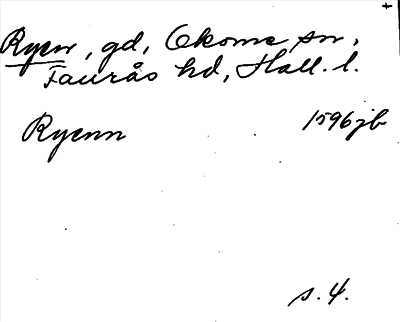 Ryen, gd, Okome sn,
Faurås hd, Hall. l.
Ryenn 1596 jb
s. 4.